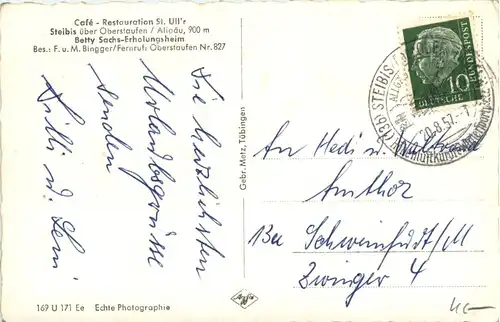 Café - Restauration St. Ull'r
Steibis über Oberstaufen / Allgäu, 900 m
Betty Sachs-Erholungsheim
Bes.: F. u. M. Bingger/Fernruf: Oberstaufen Nr. 827
Die herzlichsten
Urlaubsgrüsse
senden
Willi u. Leni
Gebr. Metz, Tübingen
169 U 171 Ee Echte Photographie
Agfa
10
DEUTSCHE BUNDESPOST
(13b) STEIBIS
20.8.57
An Hedi u. Waltraud
Amthor
13a Schweinfurt/M
Zwinger 4